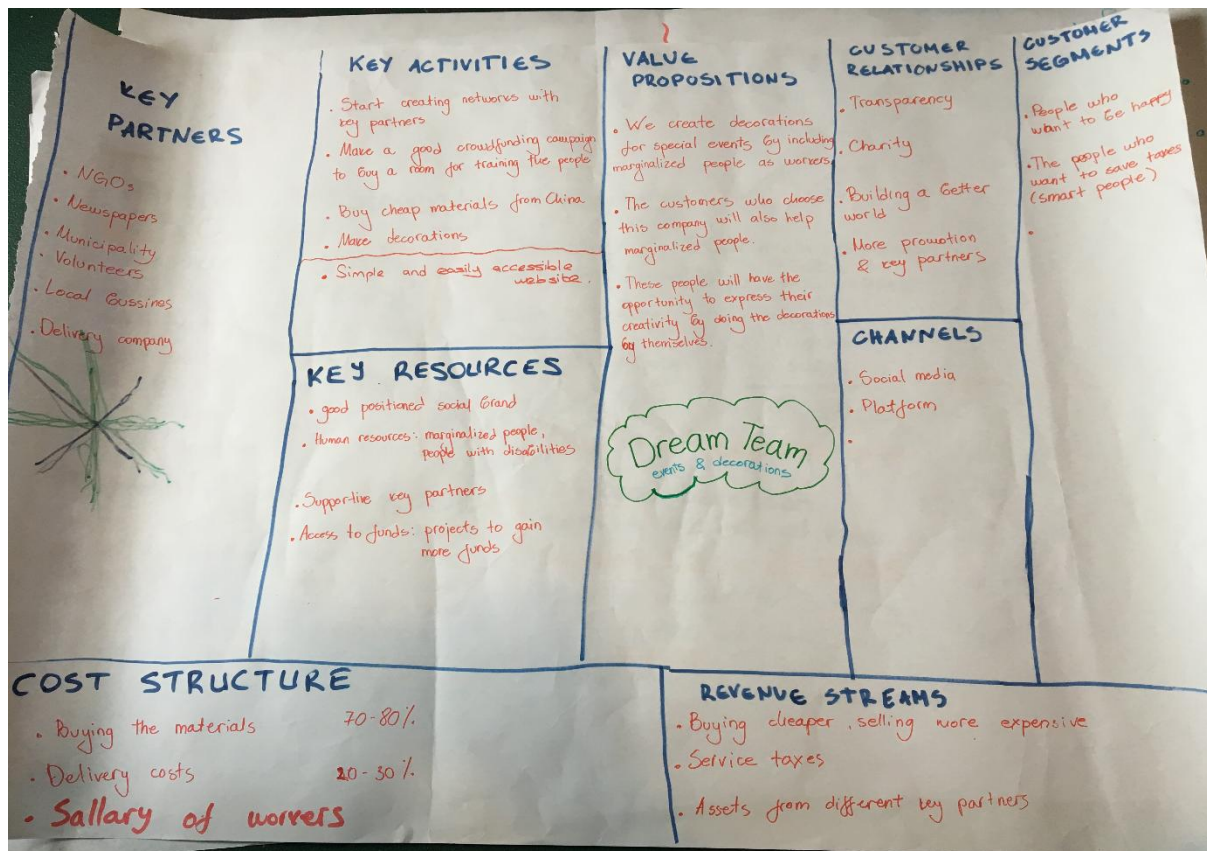 KEY
PARTNERS
. NGOs
. Newspapers
. Municipality
. Volunteers
. Local bussines
. Delivery company
KEY ACTIVITIES
. Start creating networks with
key partners
. Make a good crowdfunding campaign
to buy a room for training the people
. Buy cheap materials from China
. Make decorations
. Simple and easily accessible
website.
KEY RESOURCES
. good positioned social brand
. Human resources: marginalized people,
people with disabilities
. Supportive key partners
. Access to funds: projects to gain
more funds
VALUE
PROPOSITIONS
. We create decorations
for special events by including
marginalized people as workers.
. The customers who choose
this company will also help
marginalized people.
. These people will have the
opportunity to express their
creativity by doing the decorations
by themselves.
Dream Team
events & decorations
CUSTOMER
RELATIONSHIPS
. Transparency
. Charity
. Building a better
world
. More promotion
& key partners
CHANNELS
. Social media
. Platform
.
CUSTOMER
SEGMENTS
. People who
want to be happy
. The people who
want to save taxes
(smart people)
.
COST STRUCTURE
. Buying the materials 70-80%
. Delivery costs 20-30%
. Sallary of workers
REVENUE STREAMS
. Buying cheaper, selling more expensive
. Service taxes
. Assets from different key partners